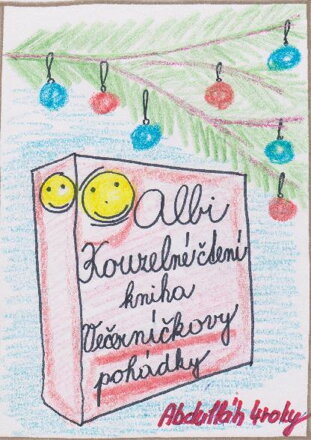 Albi
Kouzelné čtení
kniha
Večerníčkovy
pohádky
Abdulláh 4roky